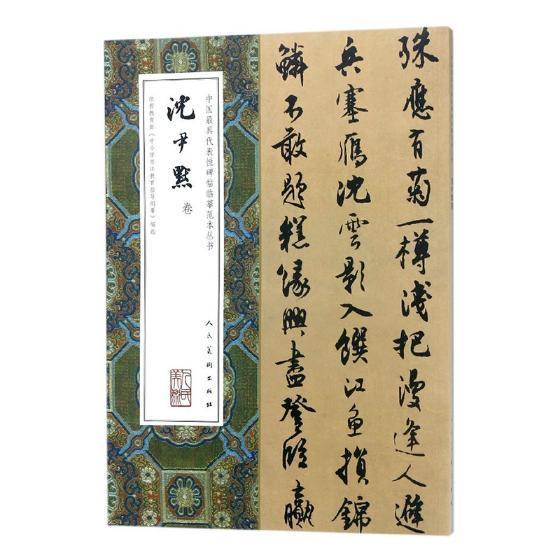 殊應有菊一樽淺把漫逢人避
兵塞雁沈雲影入饌江魚損錦
鱗不敢題糕緣興盡登臨贏
中国最具代表性碑帖临摹范本丛书
沈尹默 卷
依照教育部《中小学书法教育指导纲要》编选
人民美术出版社
人民美术